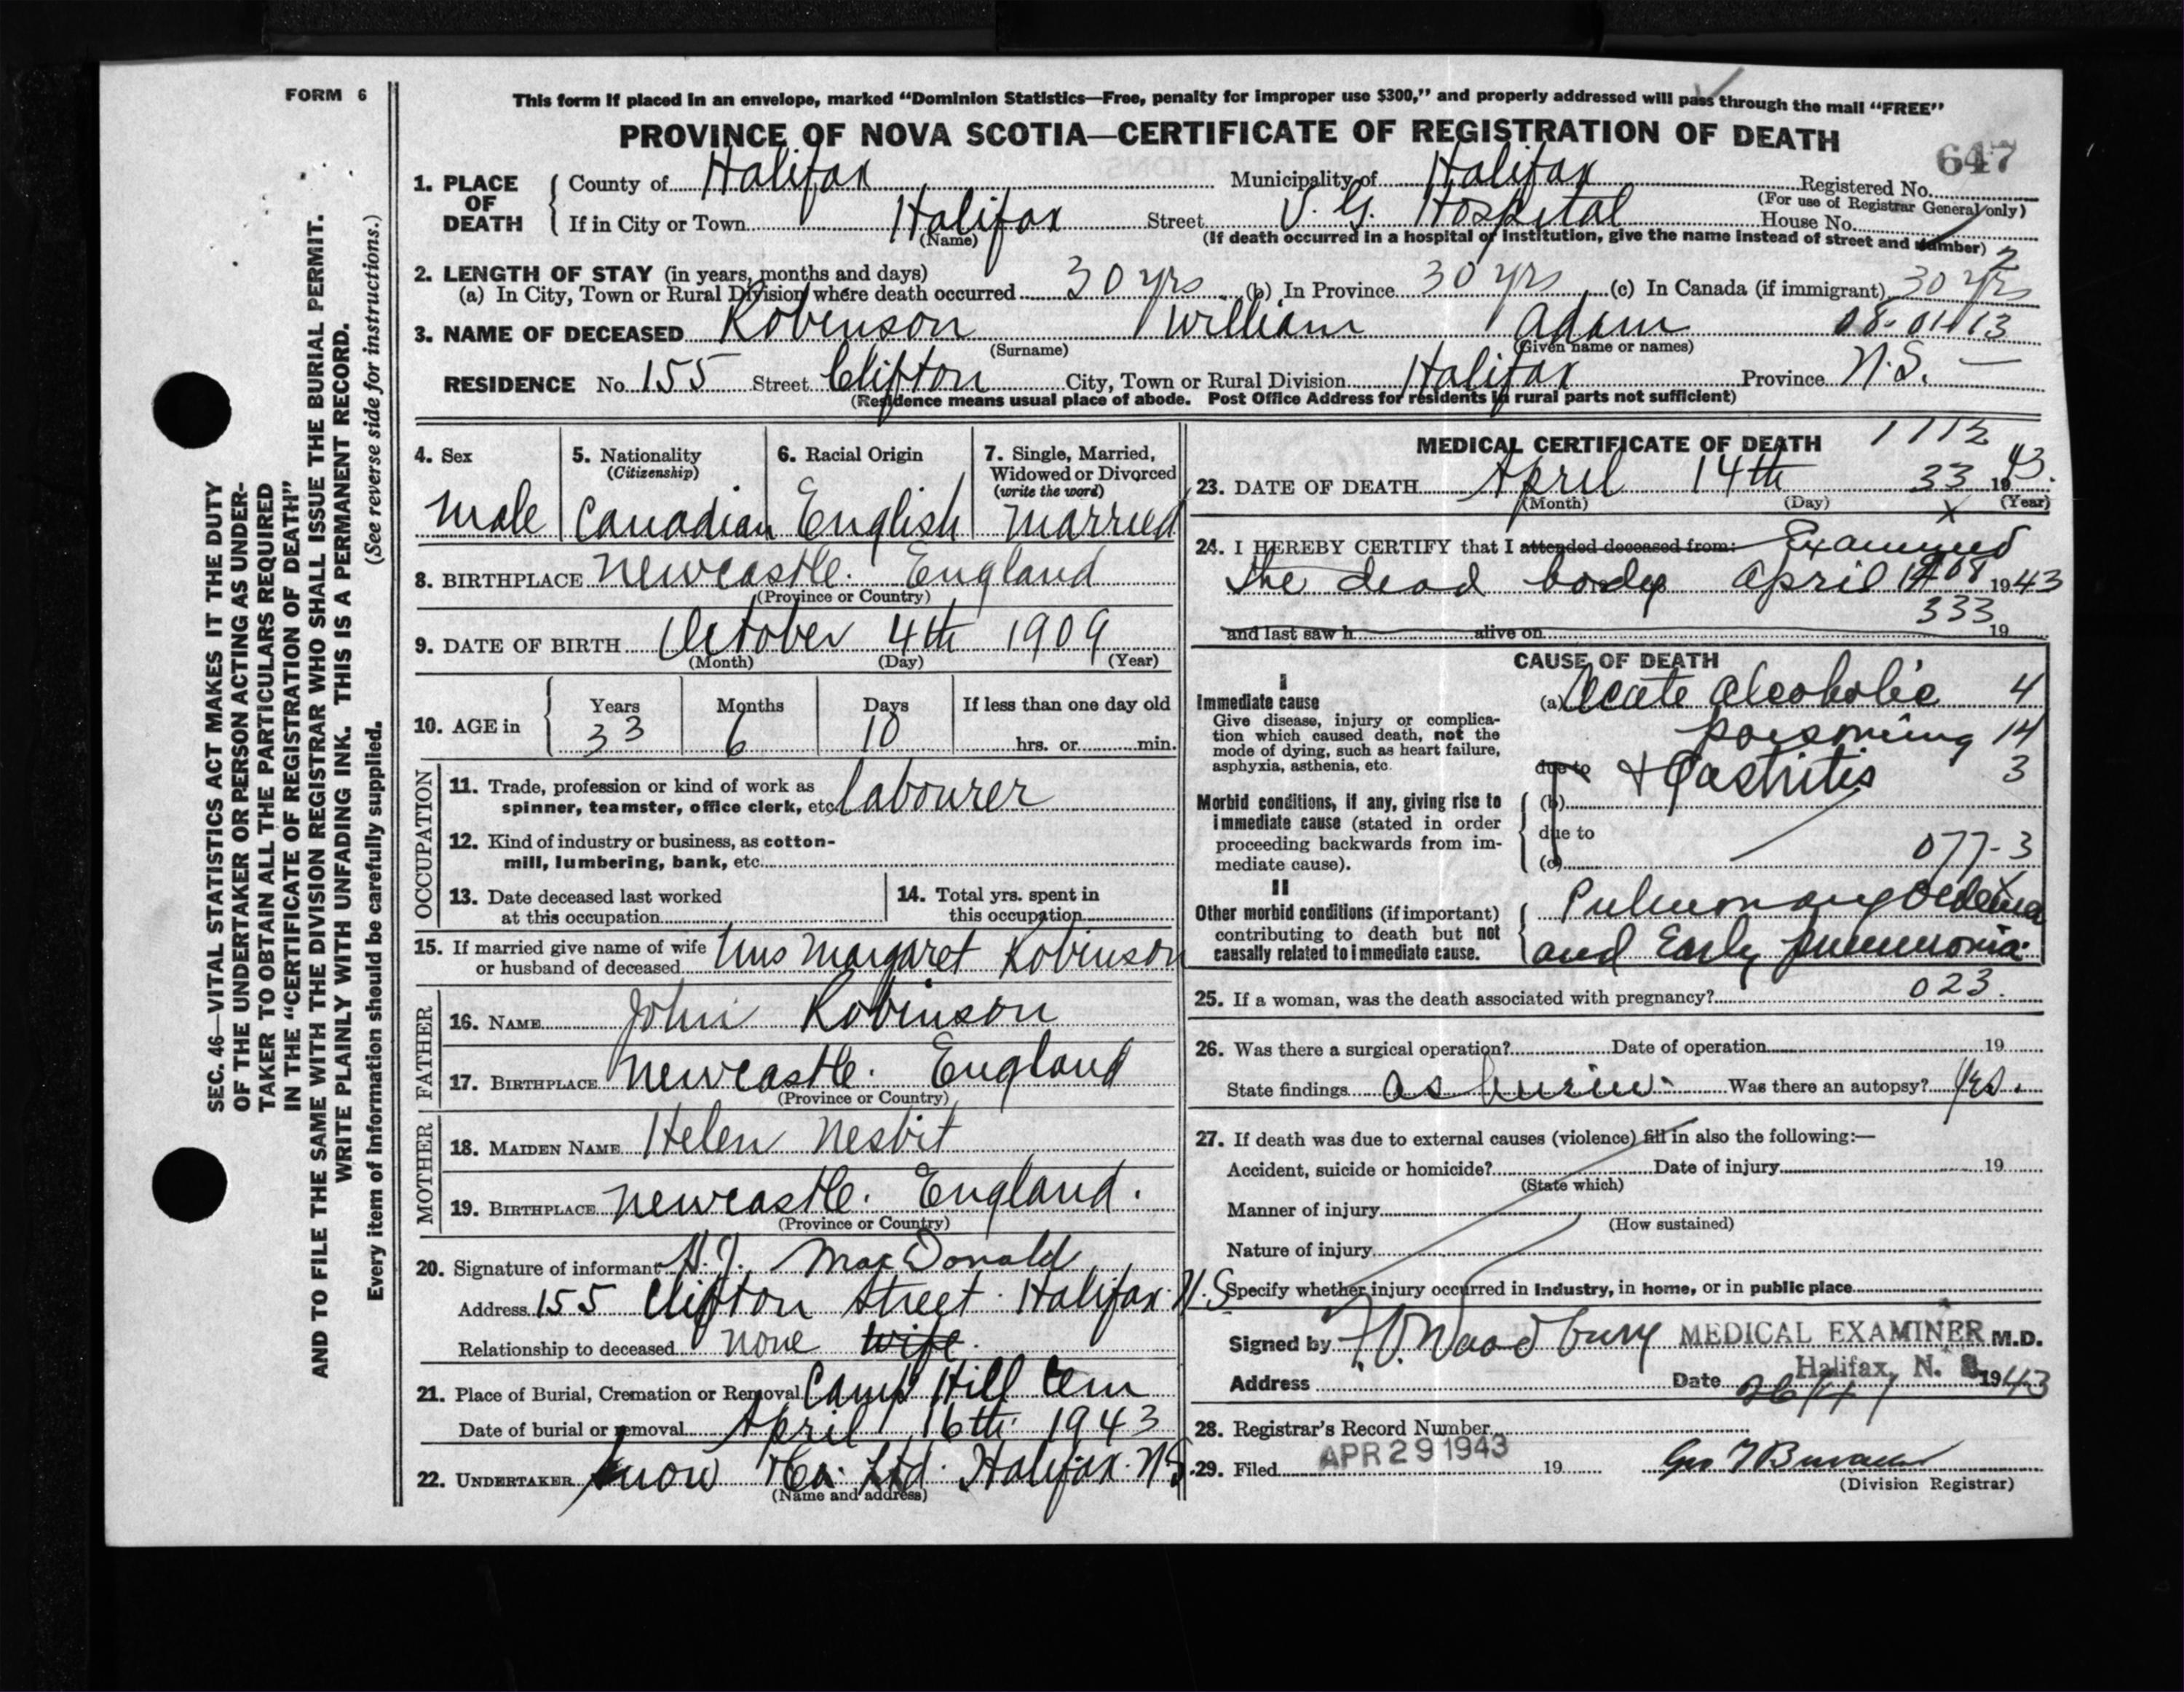 FORM 6
This form if placed in an envelope, marked “Dominion Statistics—Free, penalty for improper use $300,” and properly addressed will pass through the mail “FREE”
PROVINCE OF NOVA SCOTIA—CERTIFICATE OF REGISTRATION OF DEATH
647
1. PLACE OF DEATH
County of Halifax Municipality of Halifax Registered No.
(For use of Registrar General only)
If in City or Town Halifax Street V. G. Hospital House No.
(Name) (If death occurred in a hospital or institution, give the name instead of street and number)
2
2. LENGTH OF STAY (in years, months and days)
(a) In City, Town or Rural Division where death occurred 30 yrs (b) In Province 30 yrs (c) In Canada (if immigrant) 30 yrs
3. NAME OF DECEASED Robinson William Adam 08-01-13
(Surname) (Given name or names)
RESIDENCE No. 155 Street Clifton City, Town or Rural Division Halifax Province N.S. —
(Residence means usual place of abode. Post Office Address for residents in rural parts not sufficient)
SEC. 46—VITAL STATISTICS ACT MAKES IT THE DUTY
OF THE UNDERTAKER OR PERSON ACTING AS UNDER-
TAKER TO OBTAIN ALL THE PARTICULARS REQUIRED
IN THE “CERTIFICATE OF REGISTRATION OF DEATH”
AND TO FILE THE SAME WITH THE DIVISION REGISTRAR WHO SHALL ISSUE THE BURIAL PERMIT.
WRITE PLAINLY WITH UNFADING INK. THIS IS A PERMANENT RECORD.
Every item of information should be carefully supplied. (See reverse side for instructions.)
4. Sex
Male
5. Nationality
(Citizenship)
Canadian
6. Racial Origin
English
7. Single, Married,
Widowed or Divorced
(write the word)
Married
8. BIRTHPLACE Newcastle. England
(Province or Country)
9. DATE OF BIRTH October 4th 1909
(Month) (Day) (Year)
10. AGE in
Years Months Days If less than one day old
33 6 10 hrs. or min.
OCCUPATION
11. Trade, profession or kind of work as
spinner, teamster, office clerk, etc. labourer
12. Kind of industry or business, as cotton-
mill, lumbering, bank, etc.
13. Date deceased last worked
at this occupation
14. Total yrs. spent in
this occupation
15. If married give name of wife
or husband of deceased Mrs Margaret Robinson
FATHER
16. NAME John Robinson
17. BIRTHPLACE Newcastle. England
(Province or Country)
MOTHER
18. MAIDEN NAME Helen Nesbit
19. BIRTHPLACE Newcastle. England.
(Province or Country)
20. Signature of informant MacDonald
Address 155 Clifton Street. Halifax. N.S
Relationship to deceased none wife.
21. Place of Burial, Cremation or Removal Camp Hill Cem
Date of burial or removal April 16th. 1943
22. UNDERTAKER Snow & Co. Ltd. Halifax. N.S.
(Name and address)
MEDICAL CERTIFICATE OF DEATH
23. DATE OF DEATH April 14th 33 1943.
(Month) (Day) (Year)
x
24. I HEREBY CERTIFY that I attended deceased from: Examined
the dead body April 1943
333
and last saw h alive on 19
CAUSE OF DEATH
I
Immediate cause
Give disease, injury or complica-
tion which caused death, not the
mode of dying, such as heart failure,
asphyxia, asthenia, etc.
(a) Acute alcoholic 4
poisoning 14
due to & Gastritis 3
Morbid conditions, if any, giving rise to
immediate cause (stated in order
proceeding backwards from im-
mediate cause).
(b)
due to
(c) 077-3
II
Other morbid conditions (if important)
contributing to death but not
causally related to immediate cause.
Pulmonary oedema
and Early pneumonia.
25. If a woman, was the death associated with pregnancy? 023.
26. Was there a surgical operation? Date of operation 19
State findings as Was there an autopsy? Yes.
27. If death was due to external causes (violence) fill in also the following:—
Accident, suicide or homicide? Date of injury 19
(State which)
Manner of injury
(How sustained)
Nature of injury
Specify whether injury occurred in industry, in home, or in public place
Signed by Woodbury MEDICAL EXAMINER M.D.
Halifax, N. S.
Address Date 26/4/ 1943
28. Registrar’s Record Number
29. Filed APR 29 1943 19
(Division Registrar)